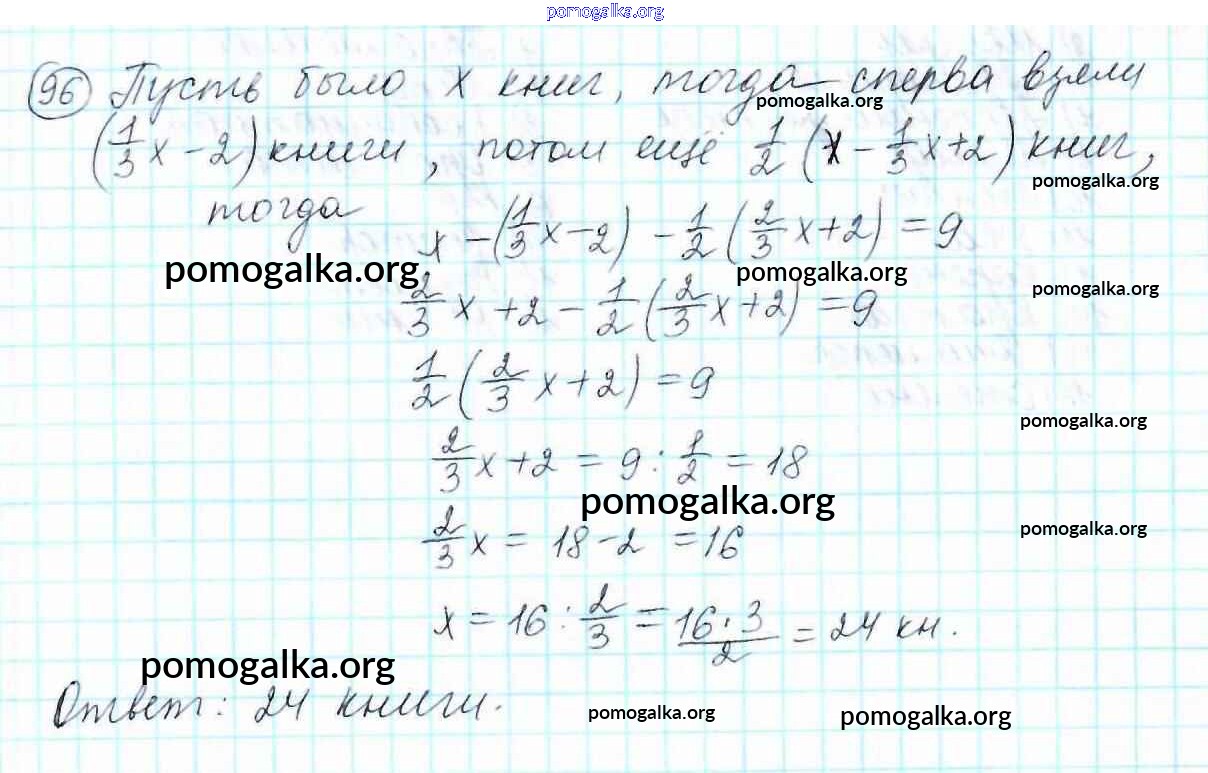 pomogalka.org
96 Пусть было x книг, тогда сперва взяли
pomogalka.org
(1/3 x - 2) книги, потом ещё 1/2 (x - 1/3 x + 2) книг,
pomogalka.org
тогда
x - (1/3 x - 2) - 1/2 (2/3 x + 2) = 9
pomogalka.org
pomogalka.org
pomogalka.org
2/3 x + 2 - 1/2 (2/3 x + 2) = 9
1/2 (2/3 x + 2) = 9
pomogalka.org
2/3 x + 2 = 9 : 1/2 = 18
pomogalka.org
pomogalka.org
2/3 x = 18 - 2 = 16
x = 16 : 2/3 = 16 · 3/2 = 24 кн.
pomogalka.org
Ответ: 24 книги.
pomogalka.org
pomogalka.org